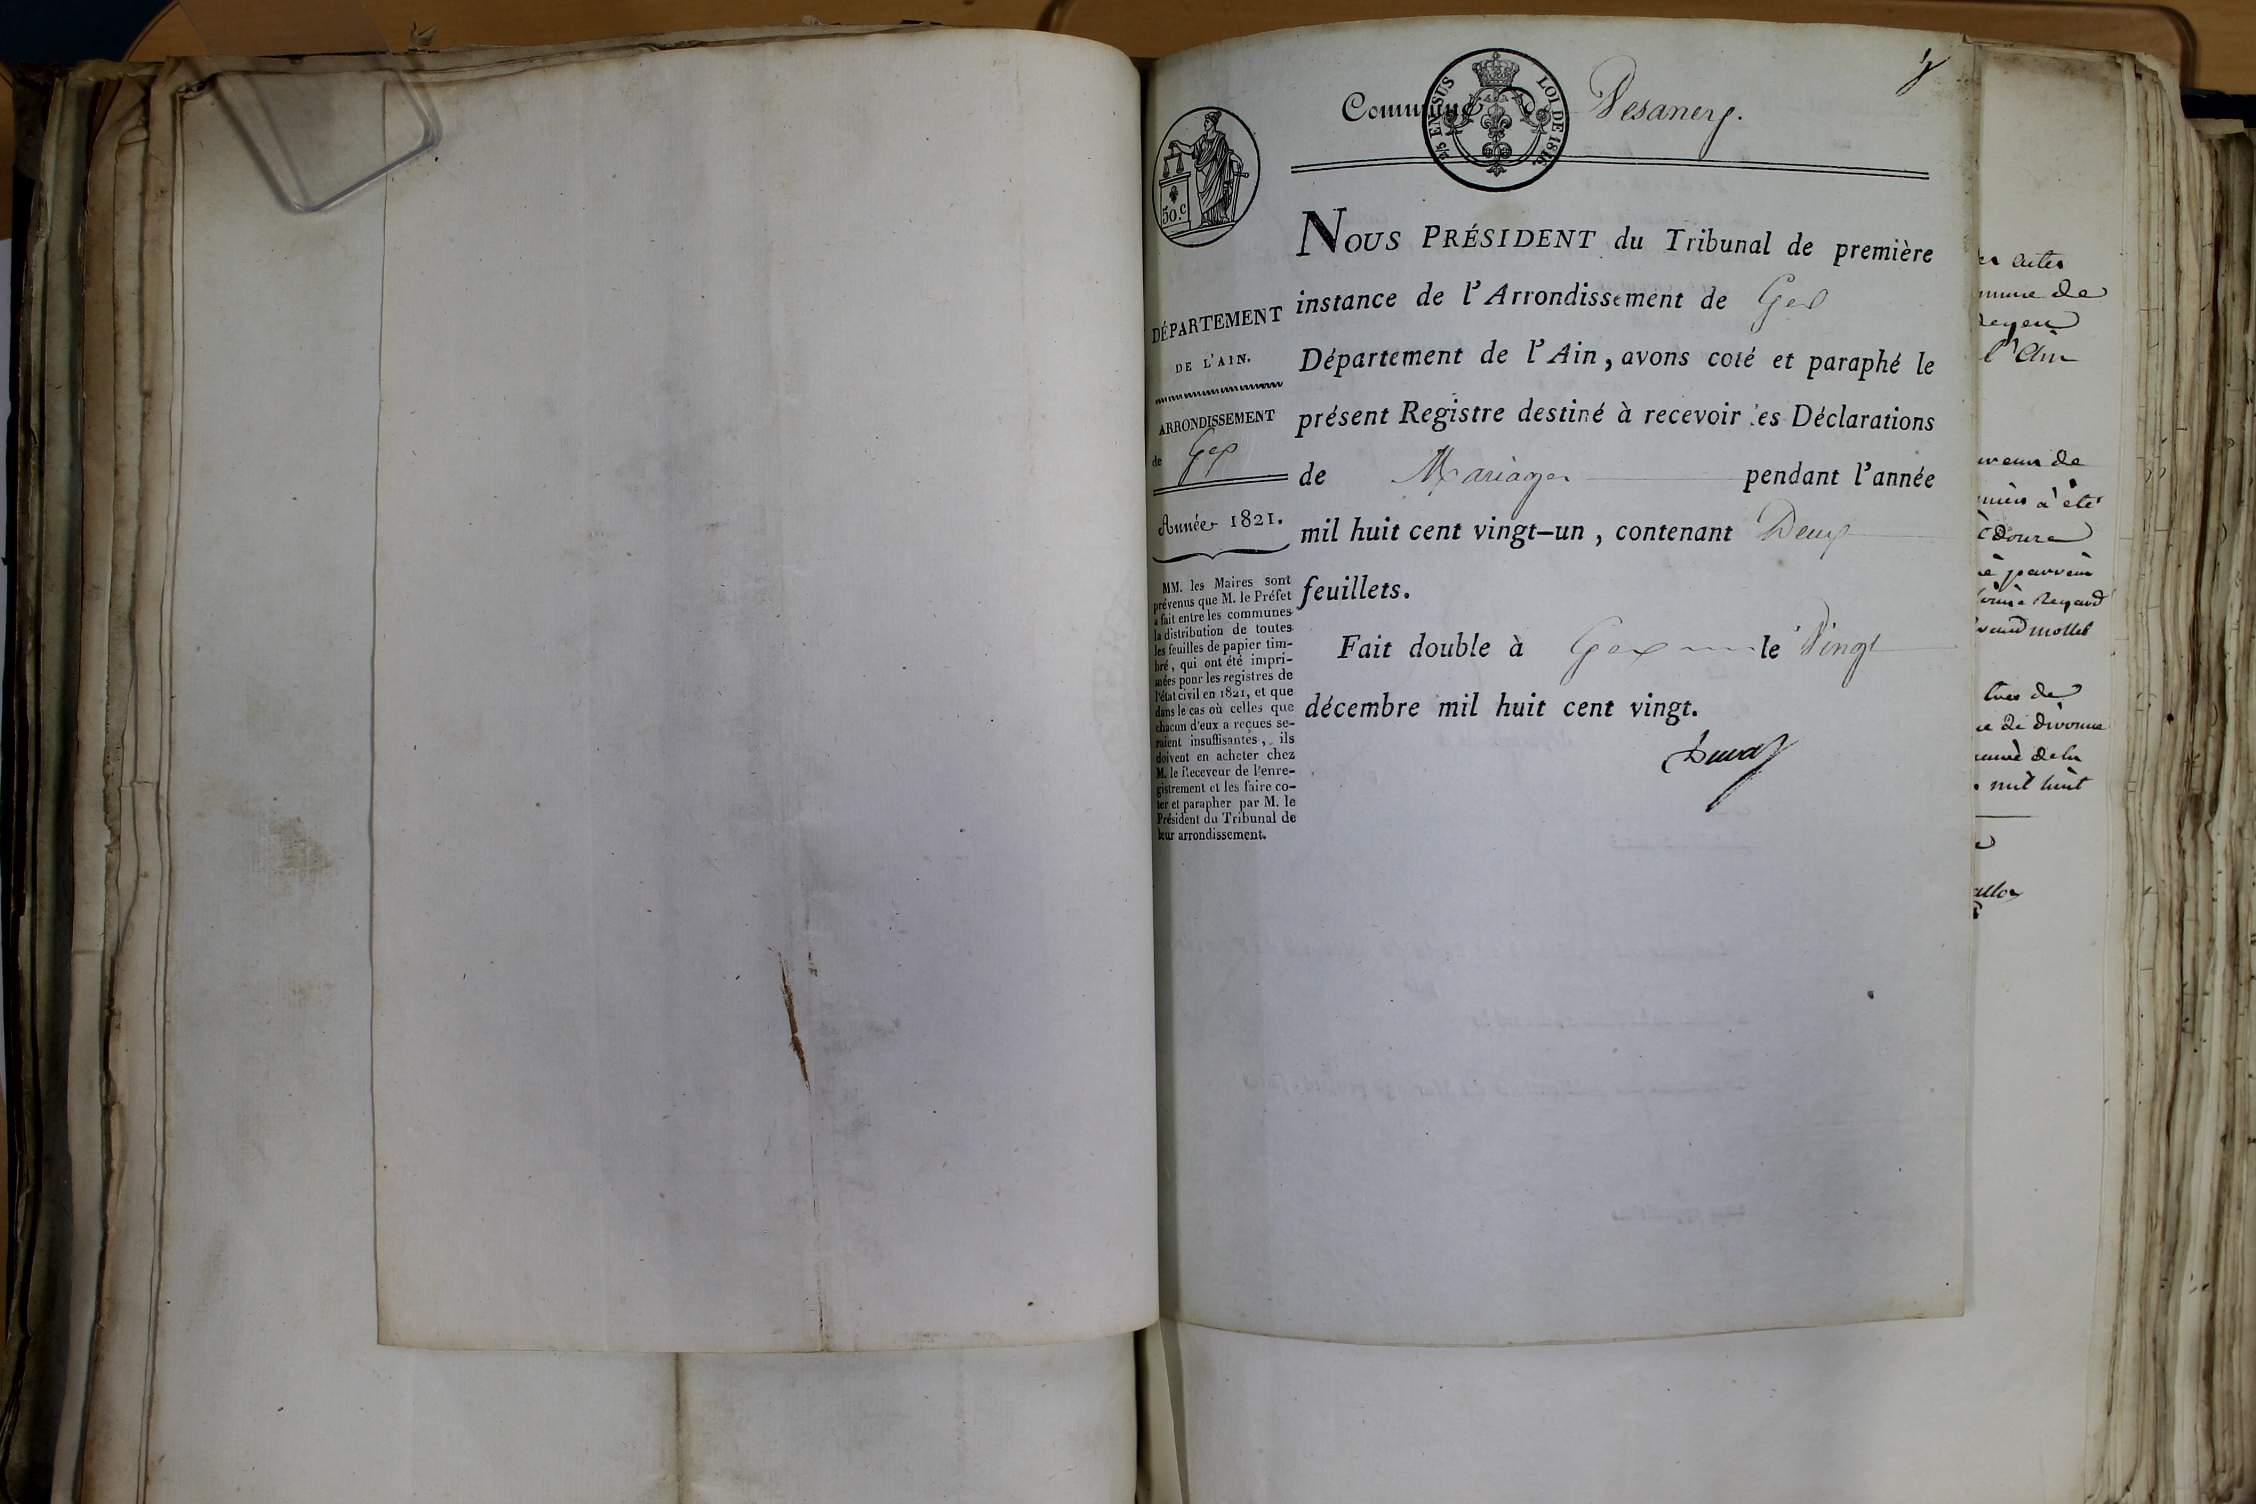 Commune De Vesanery.
2/5 EN SUS LOI DE 1816.
50.c
NOUS PRÉSIDENT du Tribunal de première
instance de l'Arrondissement de Gex
Département de l'Ain, avons coté et paraphé le
présent Registre destiné à recevoir les Déclarations
de Mariages pendant l'année
mil huit cent vingt-un, contenant Deux
feuillets.
Fait double à Gex le Vingt
décembre mil huit cent vingt.
DÉPARTEMENT
DE L'AIN.
ARRONDISSEMENT
de Gex
Année 1821.
MM. les Maires sont
prévenus que M. le Préfet
a fait entre les communes
la distribution de toutes
les feuilles de papier tim-
bré, qui ont été impri-
mées pour les registres de
l'état civil en 1821, et que
dans le cas où celles que
chacun d'eux a reçues se-
raient insuffisantes, ils
doivent en acheter chez
M. le Receveur de l'enre-
gistrement et les faire co-
ter et parapher par M. le
Président du Tribunal de
leur arrondissement.
actes
de
l'Ain
de
à été
Regard
de
de divonne
de la
mil huit